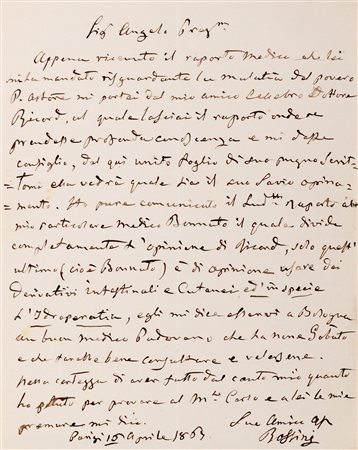 Sigr Angelo Pregmo
Appena ricevuto il raporto Medico che lei
mi ha mandato risguardante la malatia del povero
P. mi portai dal mio amico Celebre Dottore
Ricord, al quale lasciai il raporto onde ne
prendesse profonda conoscenza e mi dasse
consiglio, dal qui unito foglio di suo pugno scrit-
=tomi ella vedrà quale sia il suo Savio opina-
=mento. Ho pure comunicato il Sudto Raporto al
mio particolare medico Bonnato il quale divide
completamente l'opinione di Ricord, solo quest'
ultimo (cioè Bonnato) è di opinione usare dei
Derivativi intestinali e Cutanei ed in specie
l'Idroperatia, egli mi dice esservi a Bologna
un buon medico Padovano che ha nome Gobato
e che sarebbe bene consultare e valersene.
nella certezza di aver fatto dal canto mio quanto
ho potuto per provare al Mo Carlo e a lei le mie
premure mi dico.
Suo Amico af
Parigi 16 Aprile 1863
Bassini